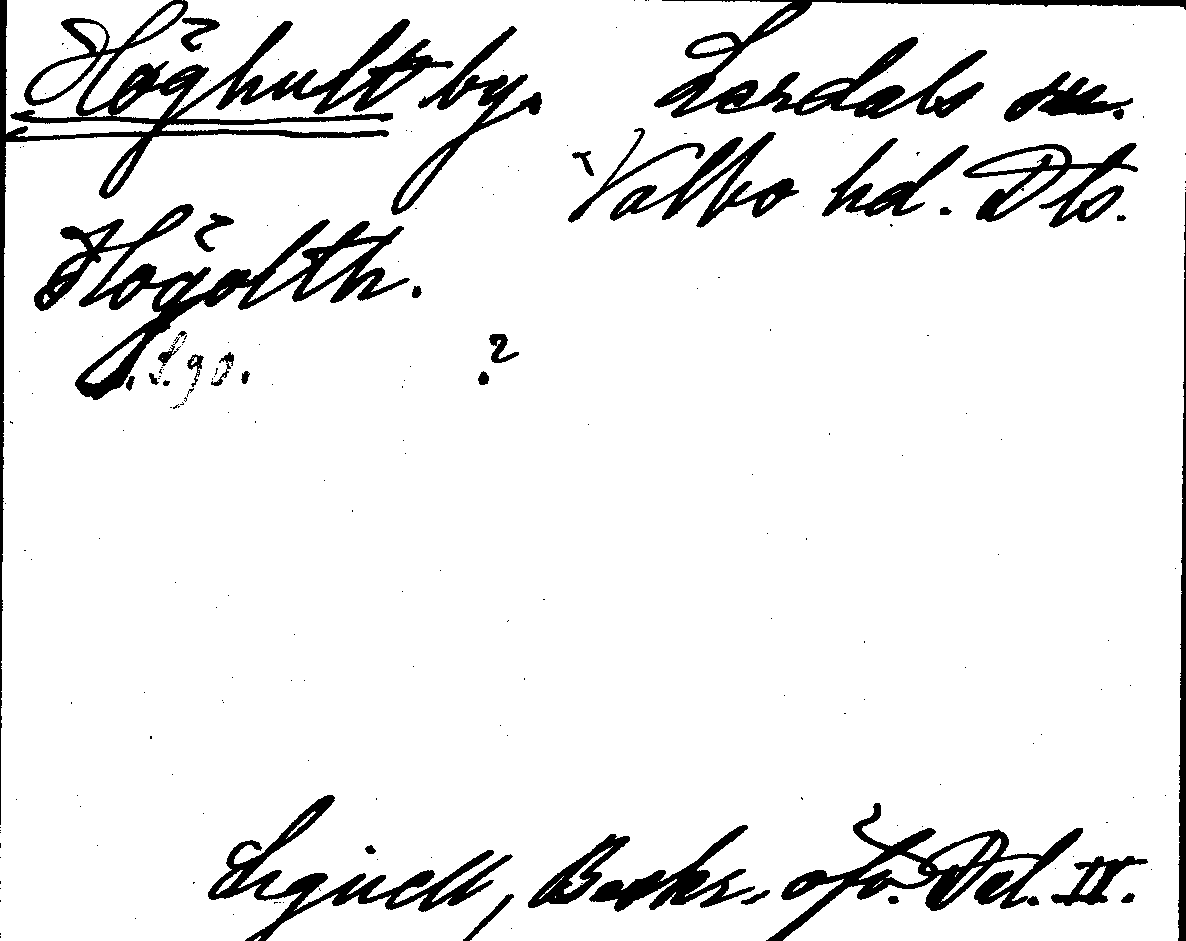 Höghult by. Lerdals sn.
Valbo hd. Dls.
Högolth.
S. 90. ?
Lignell, Beskr. öfv. Dal. II.